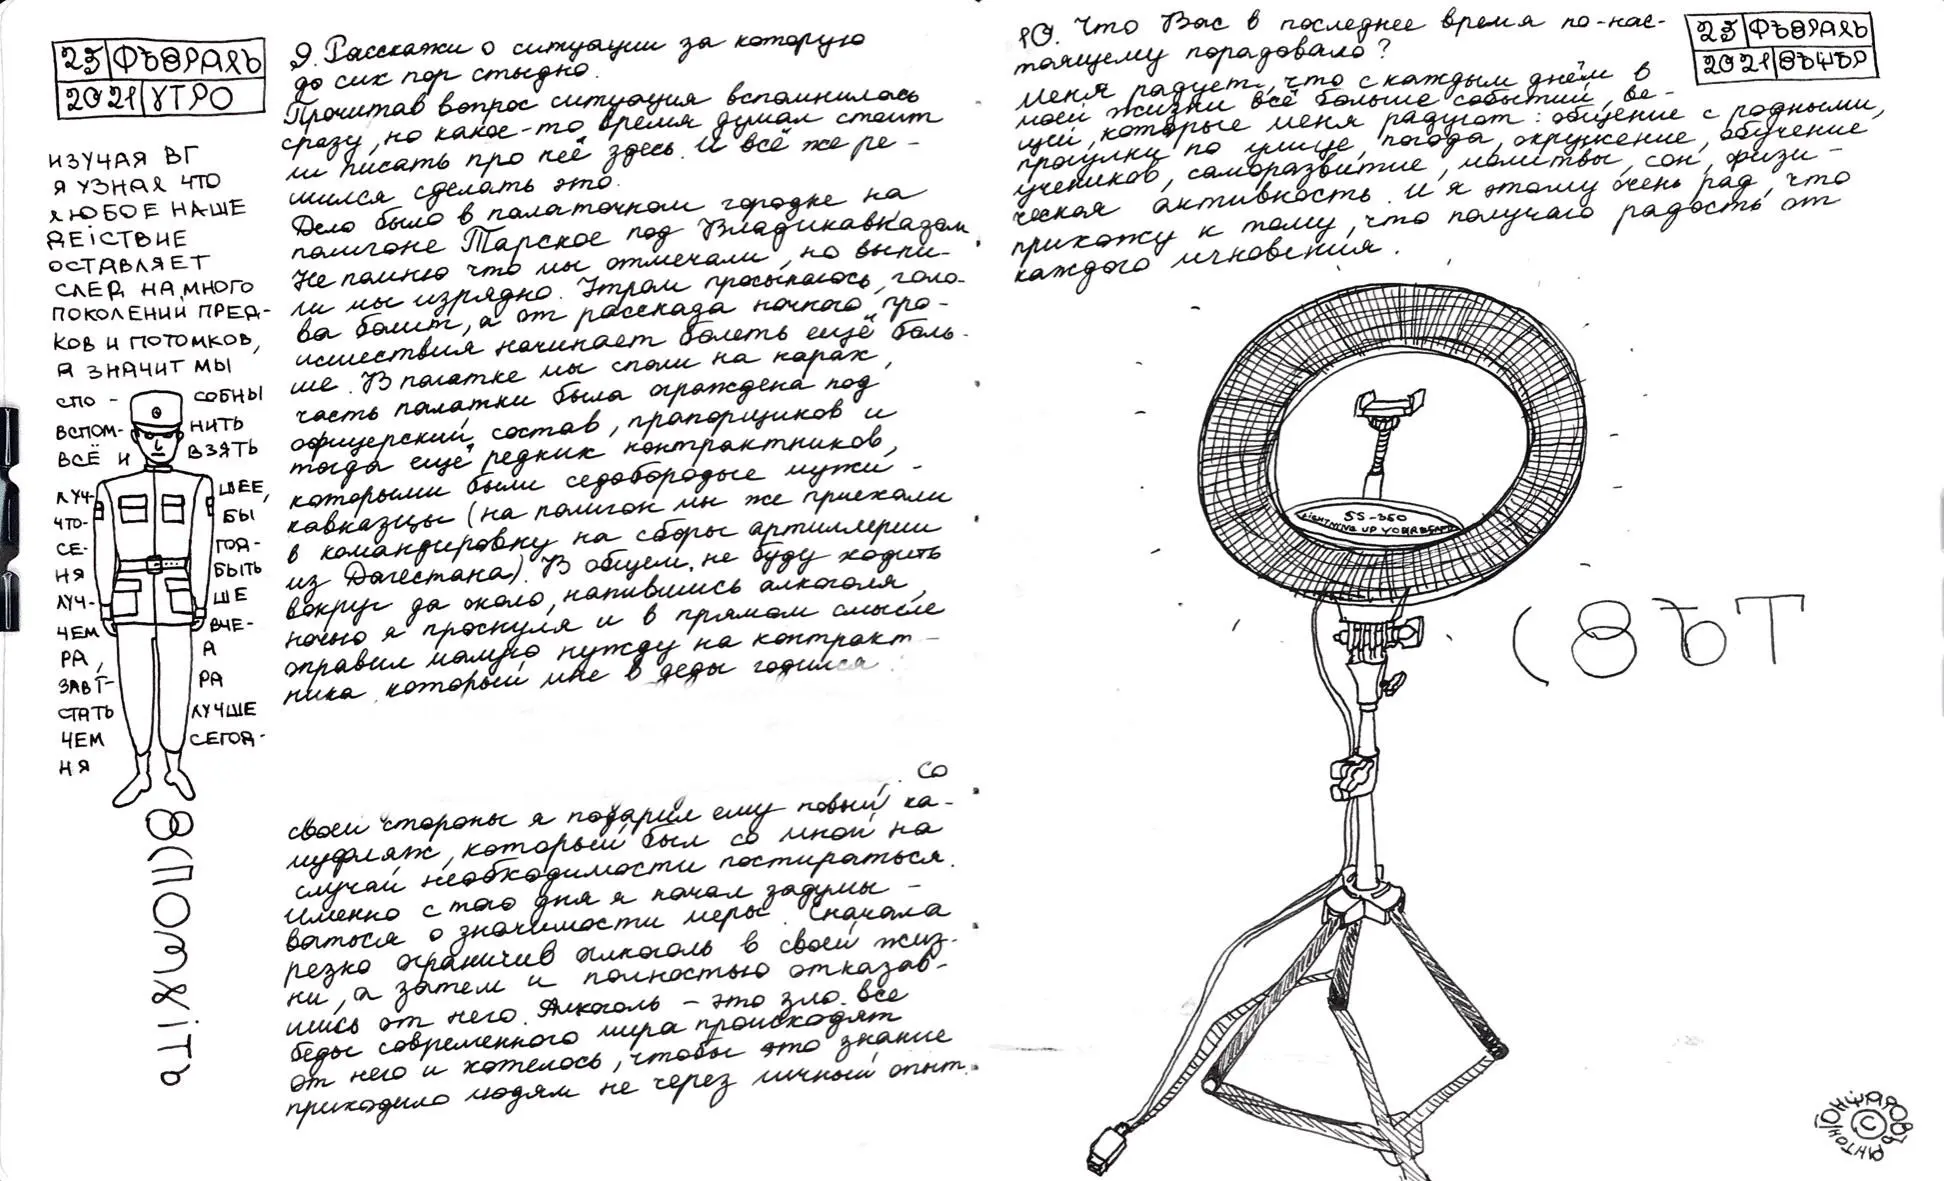 23 ФЪВРАЛЬ
2021 УТРО
ИЗУЧАЯ ВГ
Я УЗНАЛ ЧТО
ЛЮБОЕ НАШЕ
ДЕЙСТВИЕ
ОСТАВЛЯЕТ
СЛЕД НА МНОГО
ПОКОЛЕНИЙ ПРЕД-
КОВ И ПОТОМКОВ,
А ЗНАЧИТ МЫ
СПО - СОБНЫ
ВСПОМ- НИТЬ
ВСЁ И ВЗЯТЬ
ЛУЧ- ШЕЕ,
ЧТО- БЫ
СЕ- ГОД-
НЯ БЫТЬ
ЛУЧ- ШЕ
ЧЕМ ВЧЕ-
РА, А
ЗАВТ- РА
СТАТЬ ЛУЧШЕ
ЧЕМ СЕГОД-
НЯ
9. Расскажи о ситуации за которую
до сих пор стыдно.
Прочитав вопрос ситуация вспомнилась
сразу, но какое-то время думал стоит
ли писать про неё здесь. И всё же ре-
шился сделать это.
Дело было в палаточном городке на
полигоне Тарское под Владикавказом.
Не помню что мы отмечали, но выпи-
ли мы изрядно. Утром просыпаюсь, голо-
ва болит, а от рассказа ночного про-
исшествия начинает болеть ещё боль-
ше. В палатке мы спали на нарах,
часть палатки была ограждена под
офицерский состав, прапорщиков и
тогда ещё редких контрактников,
которыми были седобородые мужи-
кавказцы (на полигон мы же приехали
в командировку на сборы артиллерии
из Дагестана). В общем, не буду ходить
вокруг да около, напившись алкоголя,
ночью я проснулся и в прямом смысле
справил малую нужду на контракт-
ника который мне в деды годился.
Со
своей стороны я подарил ему новый ка-
муфляж, который был со мной, на
случай необходимости постираться.
Именно с того дня я начал задумы-
ваться о значимости меры. Сначала
резко ограничив алкоголь в своей жиз-
ни, а затем и полностью отказав-
шись от него. Алкоголь - это зло. Все
беды современного мира происходят
от него и хотелось, чтобы это знание
приходило людям не через личный опыт.
10. Что Вас в последнее время по-нас-
тоящему порадовало?
23 ФЪВРАЛЬ
2021 ВЪЧЪР
Меня радует, что с каждым днём в
моей жизни всё больше событий, ве-
щей, которые меня радуют: общение с родными,
прогулки по улице, погода, окружение, обучение
учеников, саморазвитие, молитвы, сон, физи-
ческая активность. И я этому очень рад, что
прихожу к тому, что получаю радость от
каждого мгновения.
SS-350